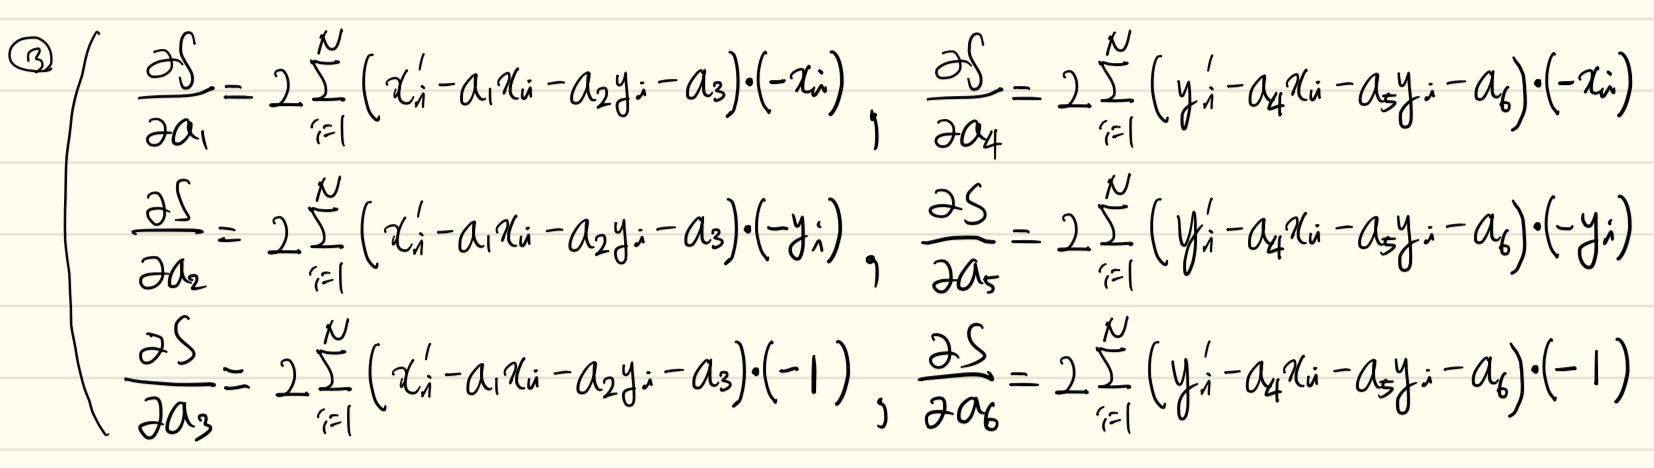 ③ ∂S/∂a₁ = 2 Σ_{i=1}^{N} (xᵢ′ - a₁xᵢ - a₂yᵢ - a₃)·(-xᵢ) , ∂S/∂a₄ = 2 Σ_{i=1}^{N} (yᵢ′ - a₄xᵢ - a₅yᵢ - a₆)·(-xᵢ)
∂S/∂a₂ = 2 Σ_{i=1}^{N} (xᵢ′ - a₁xᵢ - a₂yᵢ - a₃)·(-yᵢ) , ∂S/∂a₅ = 2 Σ_{i=1}^{N} (yᵢ′ - a₄xᵢ - a₅yᵢ - a₆)·(-yᵢ)
∂S/∂a₃ = 2 Σ_{i=1}^{N} (xᵢ′ - a₁xᵢ - a₂yᵢ - a₃)·(-1) , ∂S/∂a₆ = 2 Σ_{i=1}^{N} (yᵢ′ - a₄xᵢ - a₅yᵢ - a₆)·(-1)